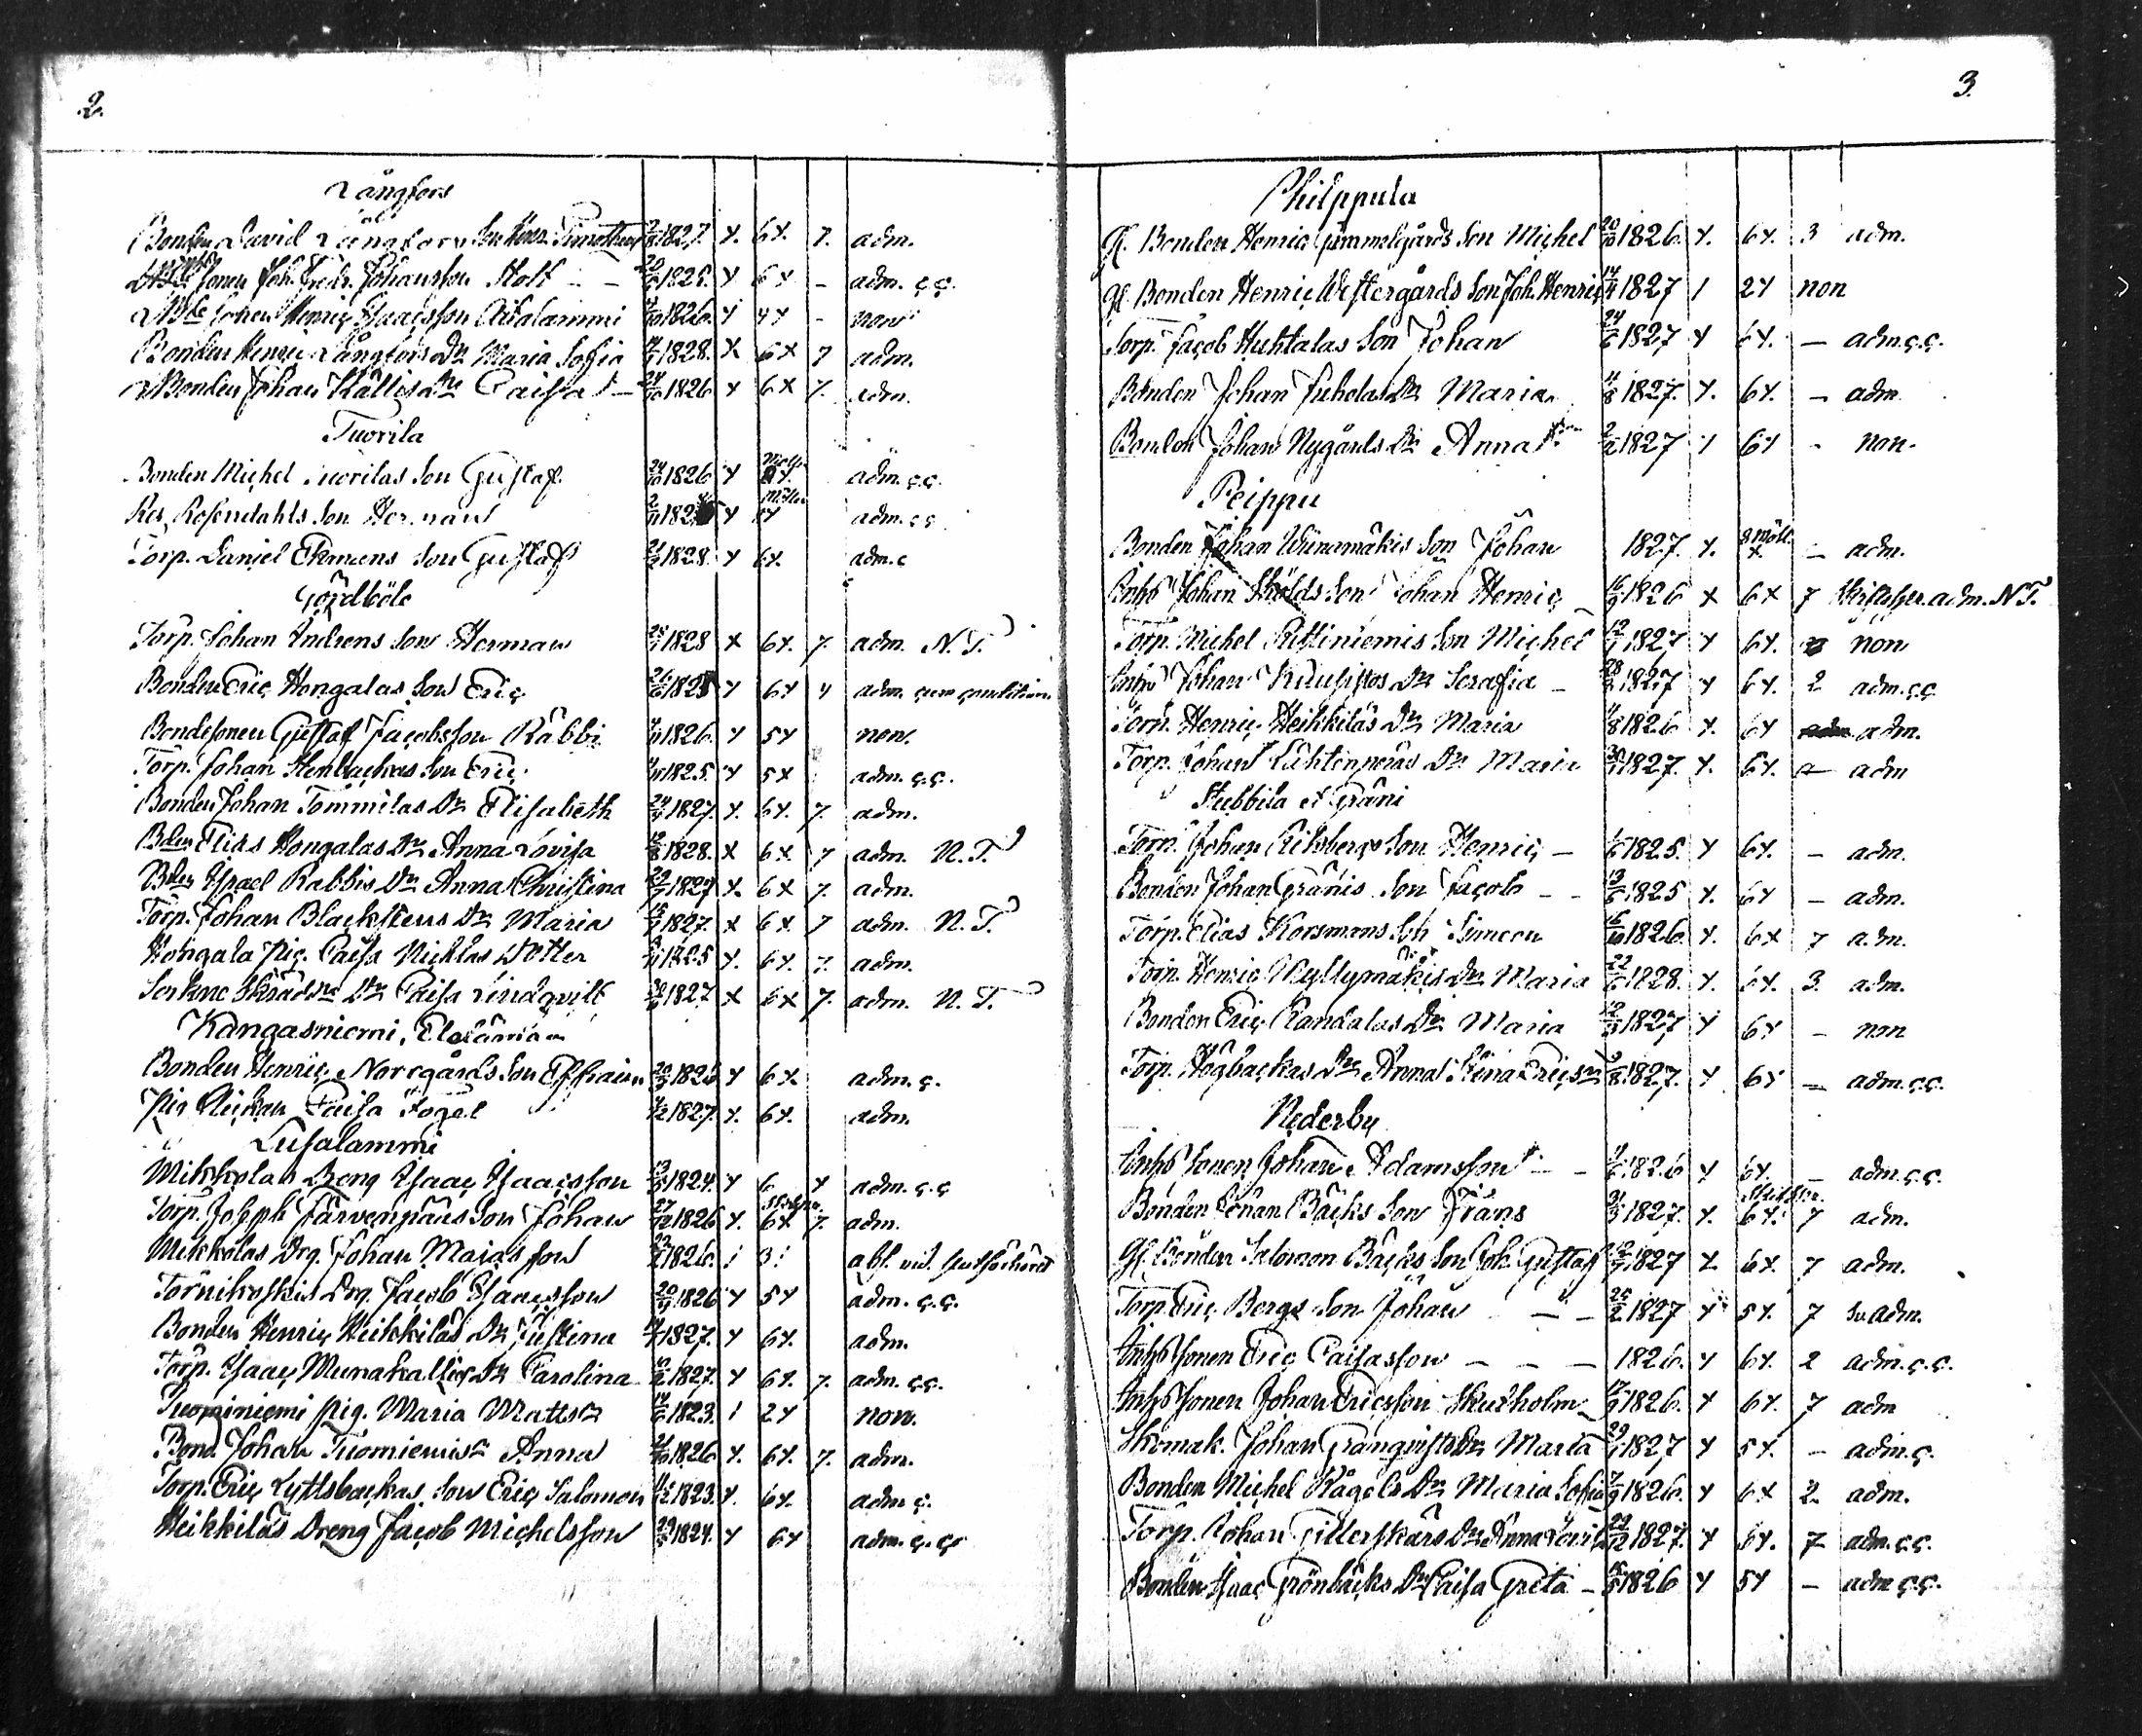 2.
Långfors
Bonden David Långfors Son Henr. Timotheus 1827. x. 6x. 7. adm.
Joh. Fredr. Johansson Holt - - 1825. x 6x - adm. c.c.
Sonen Henric Isaacsson 1826. x 4x - non
Bonden Henric Långfors Dr Maria Sofia 1828. x 6x 7 adm.
Bonden Johan Källis Dr Caisa - 24/10 1826 x 6x 7. adm.
Tuorila
Bonden Michel Tuorilas Son Gustaf 24/10 1826 x adm. c.c.
Rosendahls Son Herman 2/11 182 x adm. c.c.
Torp. Daniel Ekmans Son Gustaf 1828. x 6x. adm. c
Torp. Johan Andrens Son Herman 1828 x 6x. 7. adm. N.T.
Bonden Eric Hongalas Son Eric 26/6 182 x 6x 4 adm. cum conditione
Bondesonen Gustaf Jacobsson Rabbi 1826. x 5x non.
Torp. Johan Stenbackas Son Eric 1825. x 5x adm. c.c.
Bonden Johan Tommilas Dr Elisabeth 1827. x. 6x. 7. adm.
Bden Elias Hongalas Dr Anna Lovisa 1828. x 6x. 7 adm. N.T.
Bden Israel Rabbis Dr Anna Christina 1827 x. 6x 7. adm.
Torp. Johan Blackstens Dr Maria 1827. x 6x. 7 adm. N.T.
Hongala Pig. Caisa Niklas Dotter 1825 x. 6x. 7. adm.
Dr Caisa Lindqvist 1827 x 6x 7. adm. N.T.
Kangasniemi,
Bonden Henric Norrgårds Son Efraim 182 x 6x. adm. c.
Pig Caisa Fogel 1827. x. 6x. adm.
Lusalammi
Mikkolas Dreng Isaac Isaacsson 1824. x 6 x adm. c.c
Torp. Joseph Järvenpääs Son Johan 27/12 1826 x. 6x 7. adm.
Mikkolas Drg. Johan Maias son 1826. 1 3
Törnikoskis Drg. Jacob Isaacsson 20/11 1826 x 5x adm. c.c.
Bonden Henric Heikkiläs Dr Justina 1827. x 6x. adm.
Torp. Isaac Munakallios Dr Carolina 1827. x 6x. 7. adm. c.c.
Tuominiemi pig. Maria Mattsdr 1823. 1 2x non.
Bond. Johan Tuomiemis Dr Anna 1826 x. 6x. 7. adm.
Torp. Eric Lyttsbackas Son Eric Salomon 1823. x. 6x. adm c.
Heikkiläs Dreng Jacob Michelsson 1824. x 6x adm. c.c.
3.
Philppula
Gl. Bonden Henric Gammelgårds Son Michel 1826. x. 6x. 3 adm.
Gl. Bonden Henric Westergårds Son Joh. Henric 1827 1 2x non
Torp. Jacob Huhtalas Son Johan 24/6 1827 x 6x. - adm. c.c.
Bonden Johan Juholas Dr Maria 1827. x. 6x. - adm
Bonden Johan Nygårds Dr Anna 1827 x 6x - non.
Peippu
Bonden Johan Wiinamäkis Son Johan 1827. x. - adm.
Inhs Johan Skölds Son Johan Henric 16/9 1826 x 6x 7 adm. N.T.
Torp. Michel Ristiniemis Son Michel 1827 x 6x. non
Inhs Johan Kruusistos Dr Serafia - 1827 x 6x. 2 adm. c.c.
Torp. Henric Heikkiläs Dr Maria 1826 x. 6x adm.
Torp. Johan Lähtenpääs Dr Maria 1827. x. 6x. adm
Stubbila et Gräni
Torp. Johan Son Henric - 1825. x 6x. - adm.
Bonden Johan Gränis Son Jacob - - 1825 x. 6x - adm.
Torp. Elias Korsmans Son Simeon 16/10 1826. x. 6x 7 adm.
Torp. Henric Myllymäkis Dr Maria 1828. x. 6x. 3. adm.
Bonden Eric Randalas Dr Maria 1827 x 6x - non
Torp. Högbackas Dr Anna Stina Ericsdr 1827. x 6x - adm. c.c.
Nederby
Inhs Sonen Johan Adamsson - - 1826 x 6x. - adm. c.c.
Bonden Johan Bäcks Son Frans 1827. x. 6x. 7 adm.
Gl. Bonden Salomon Bäcks Son Joh. Gustaf 1827 x. 6x. 7 adm.
Torp. Eric Bergs Son Johan - - 1827 x 5x. 7 adm.
Inhs Sonen Eric Caisasson - - - 1826. x 6x. 2 adm. c.c.
Inhs Sonen Johan Ericsson Skurholm 1826. x 6x. 7 adm
Skomak. Johan Granqvists Dr Maria 1827 x 5x. - adm. c.
Bonden Michel Kågels Dr Maria Sofia 1826. x 6x 2. adm.
Torp. Johan Gillerskärs Dr Anna Lovisa 1827. x 5x. 7 adm. c.c.
Bonden Isaac Grönbäcks Dr Caisa Greta - 1826 x 5x - adm c.c.